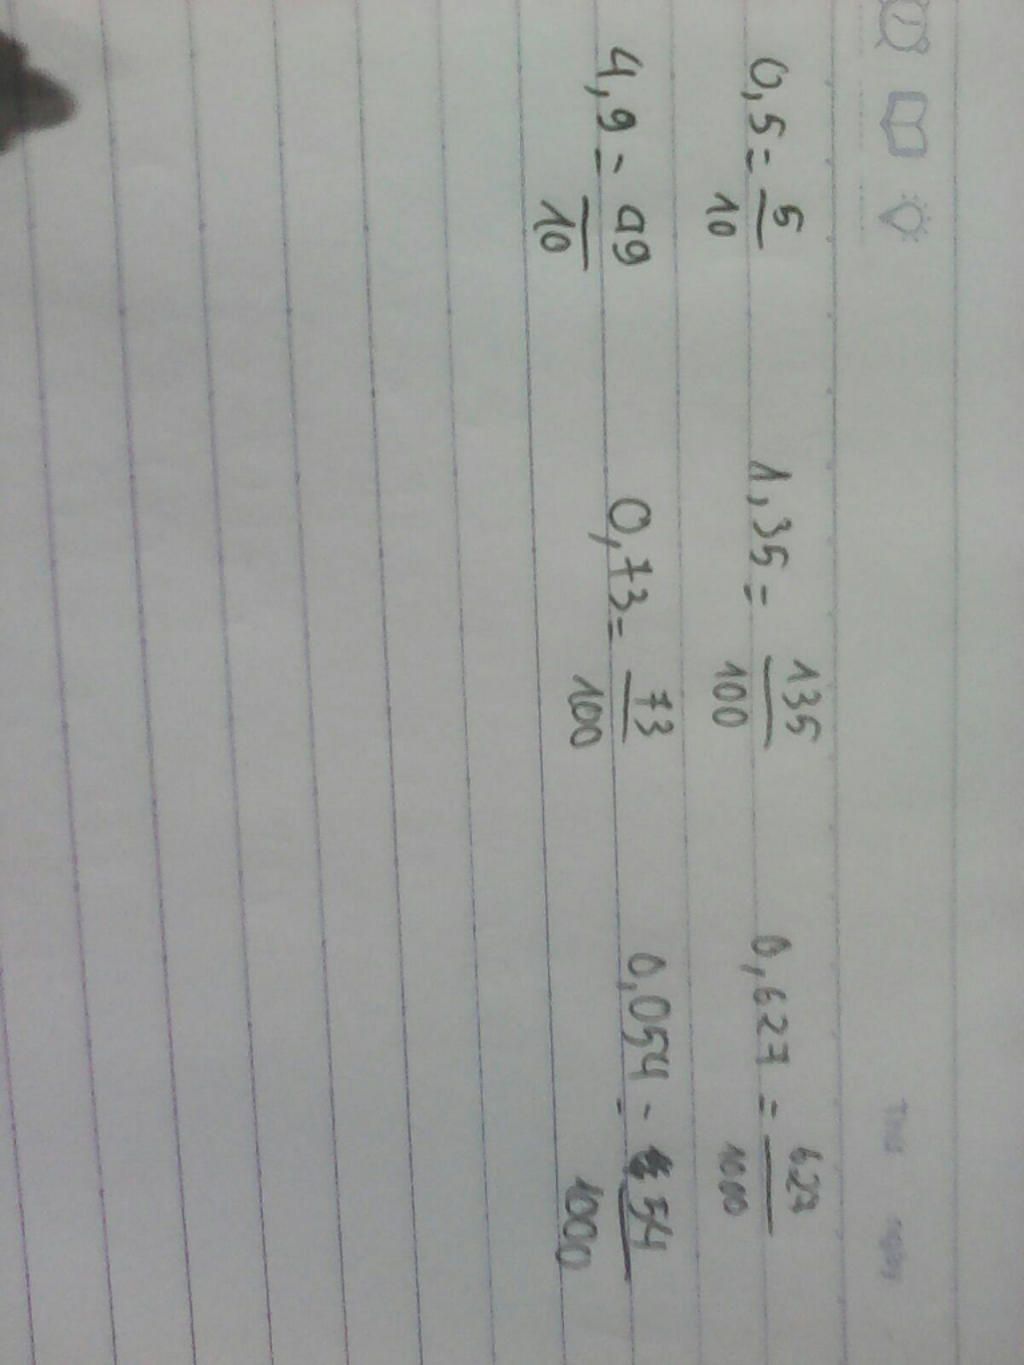 0,5 = 5/10 1,35 = 135/100 0,627 = 627/1000
4,9 = 49/10 0,73 = 73/100 0,054 = 54/1000